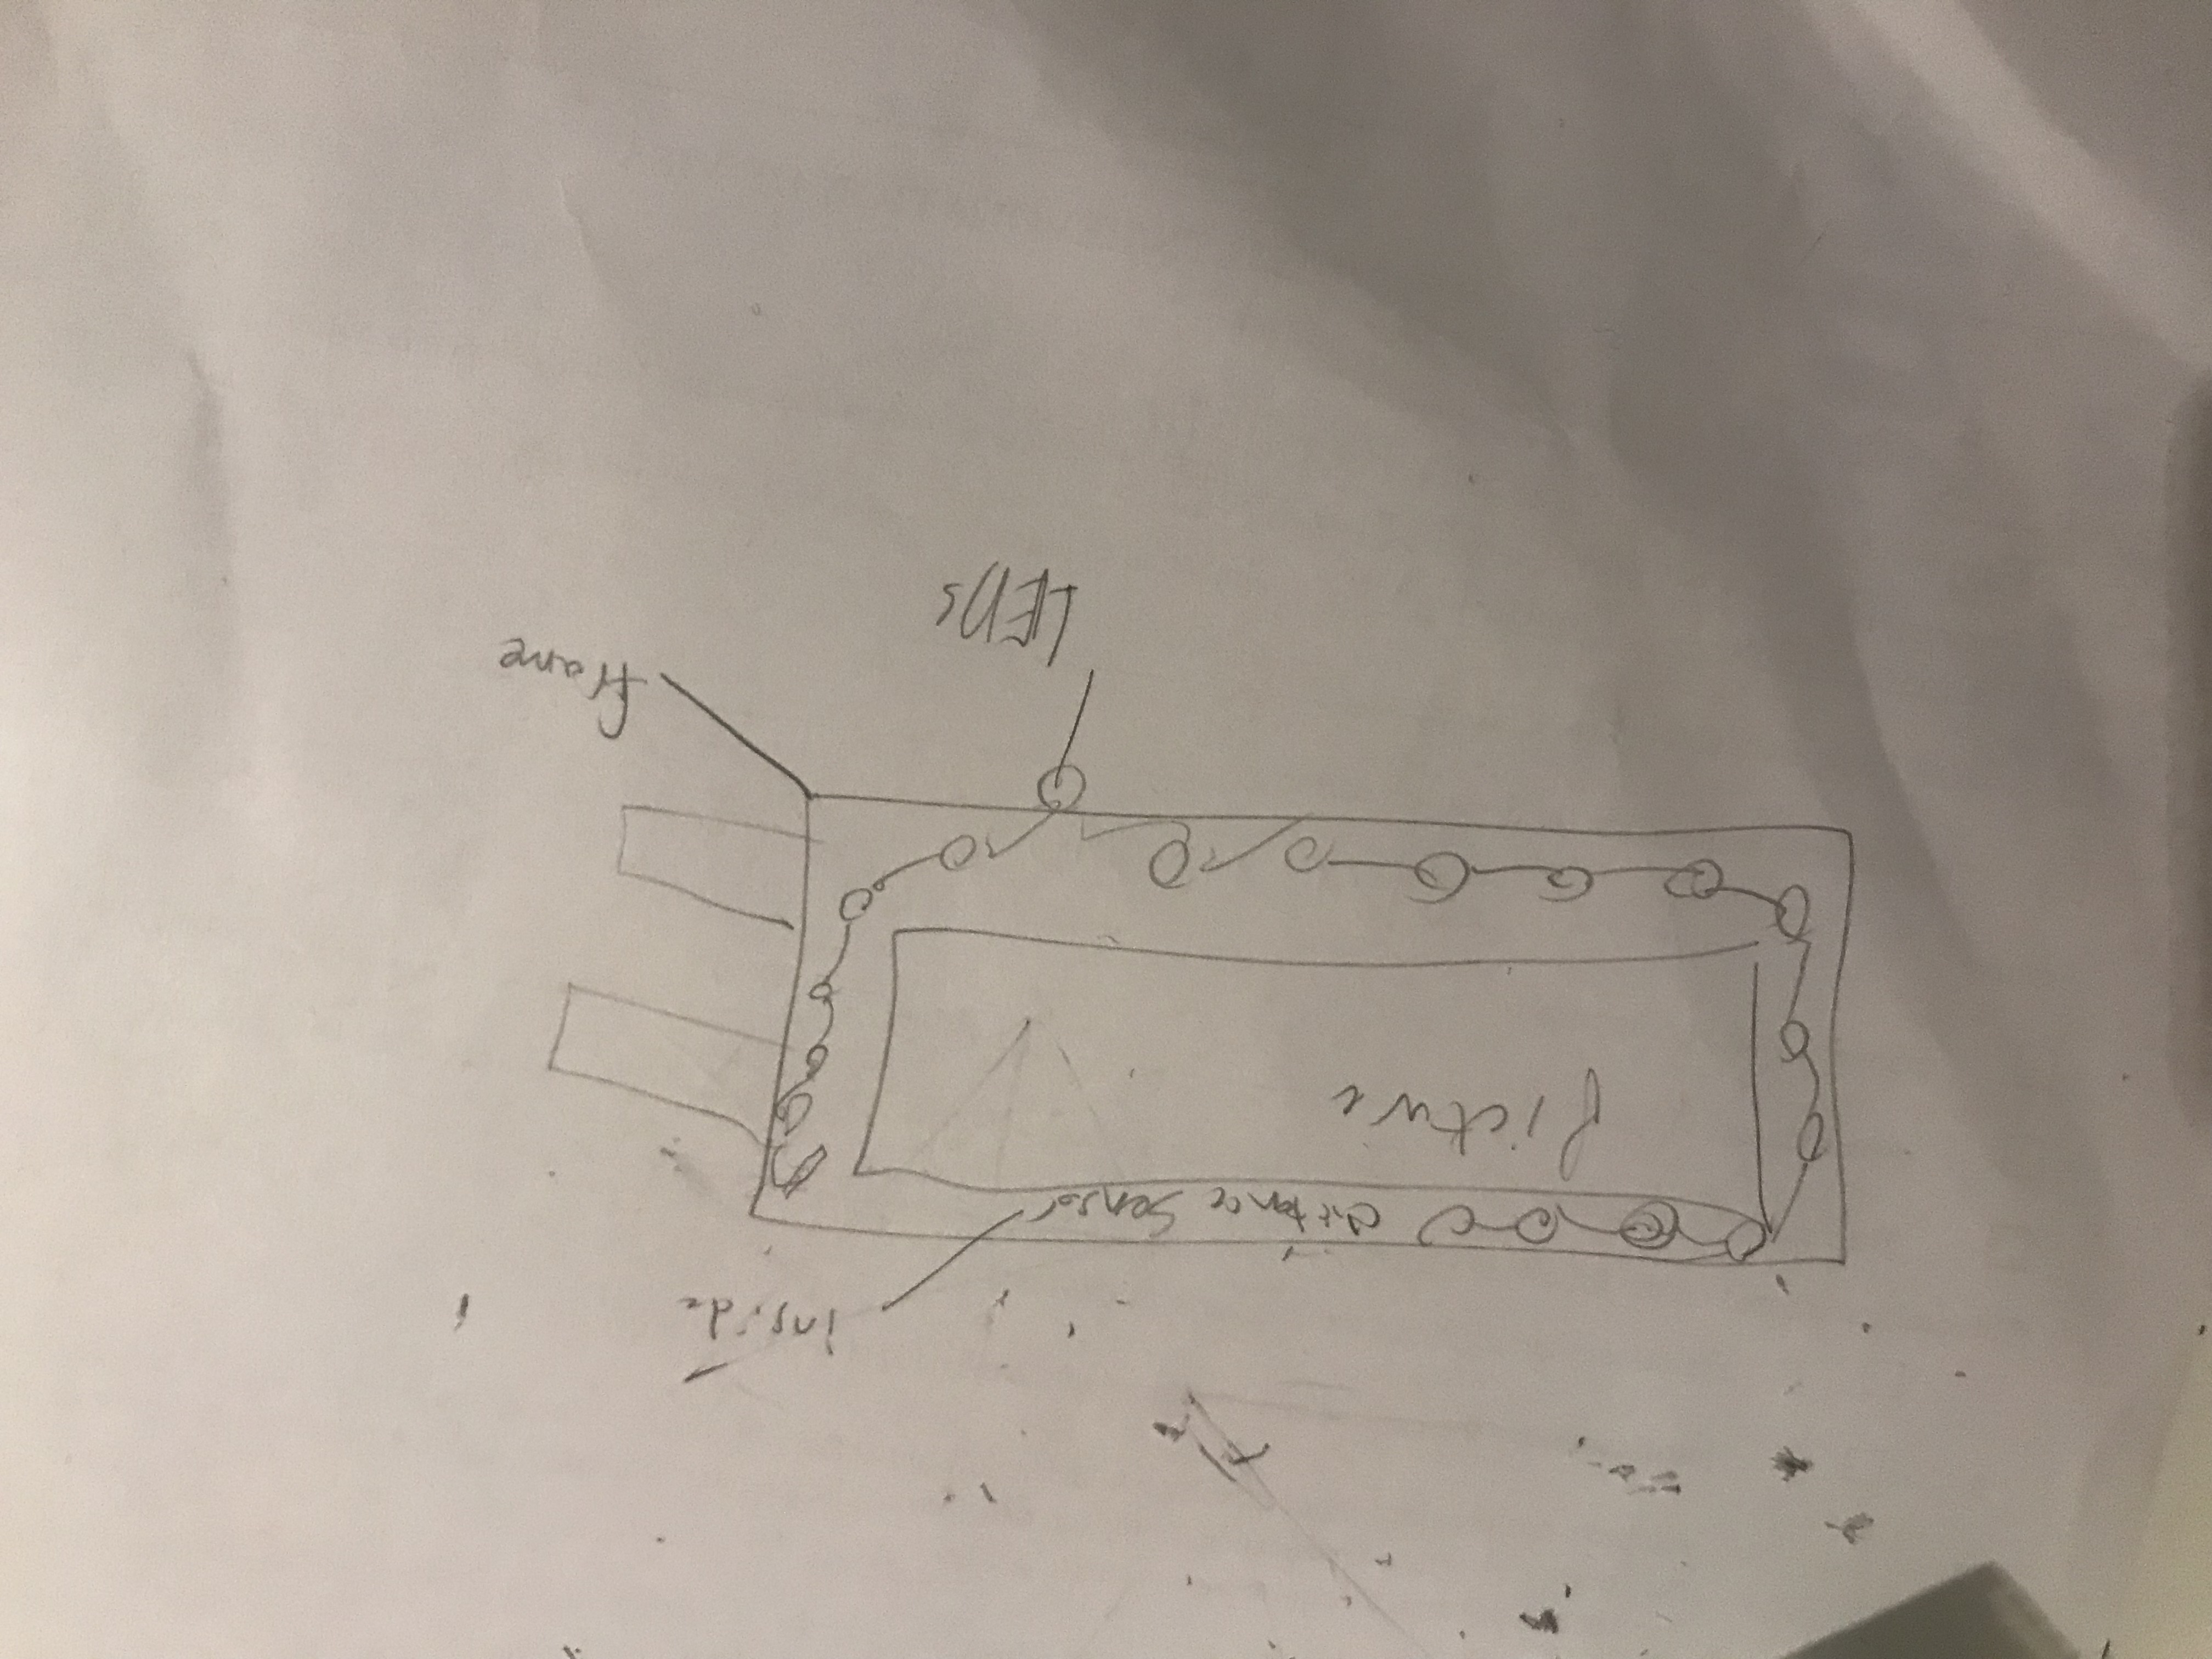 inside
distance Sensor
picture
frame
LEDs